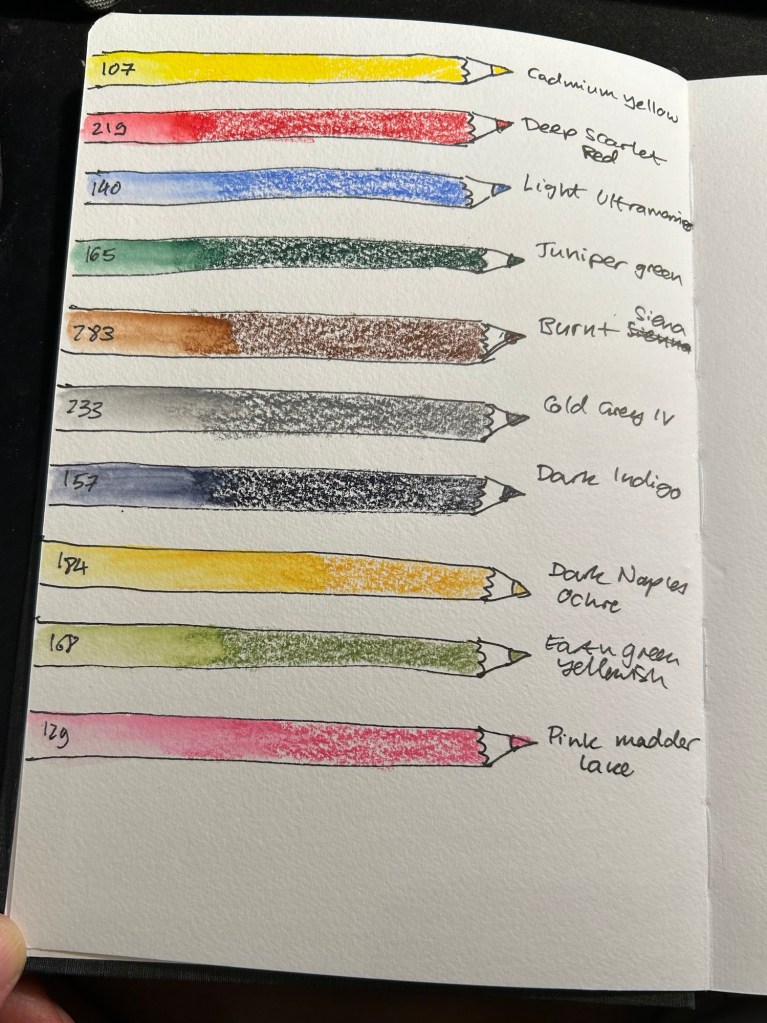 107 Cadmium yellow
219 Deep Scarlet
Red
140 Light Ultramarine
165 Juniper green
Siena
283 Burnt Sienna
233 Cold Grey IV
157 Dark Indigo
184 Dark Naples
Ochre
168 Earth green
yellowish
129 Pink madder
lake